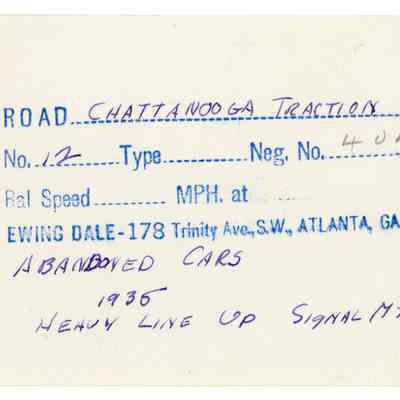 ROAD CHATTANOOGA TRACTION
No. 12 Type Neg. No. 404
Bal Speed MPH. at
EWING DALE-178 Trinity Ave., S.W., ATLANTA, GA
ABANDONED CARS
1936
HEAVY LINE UP SIGNAL MT